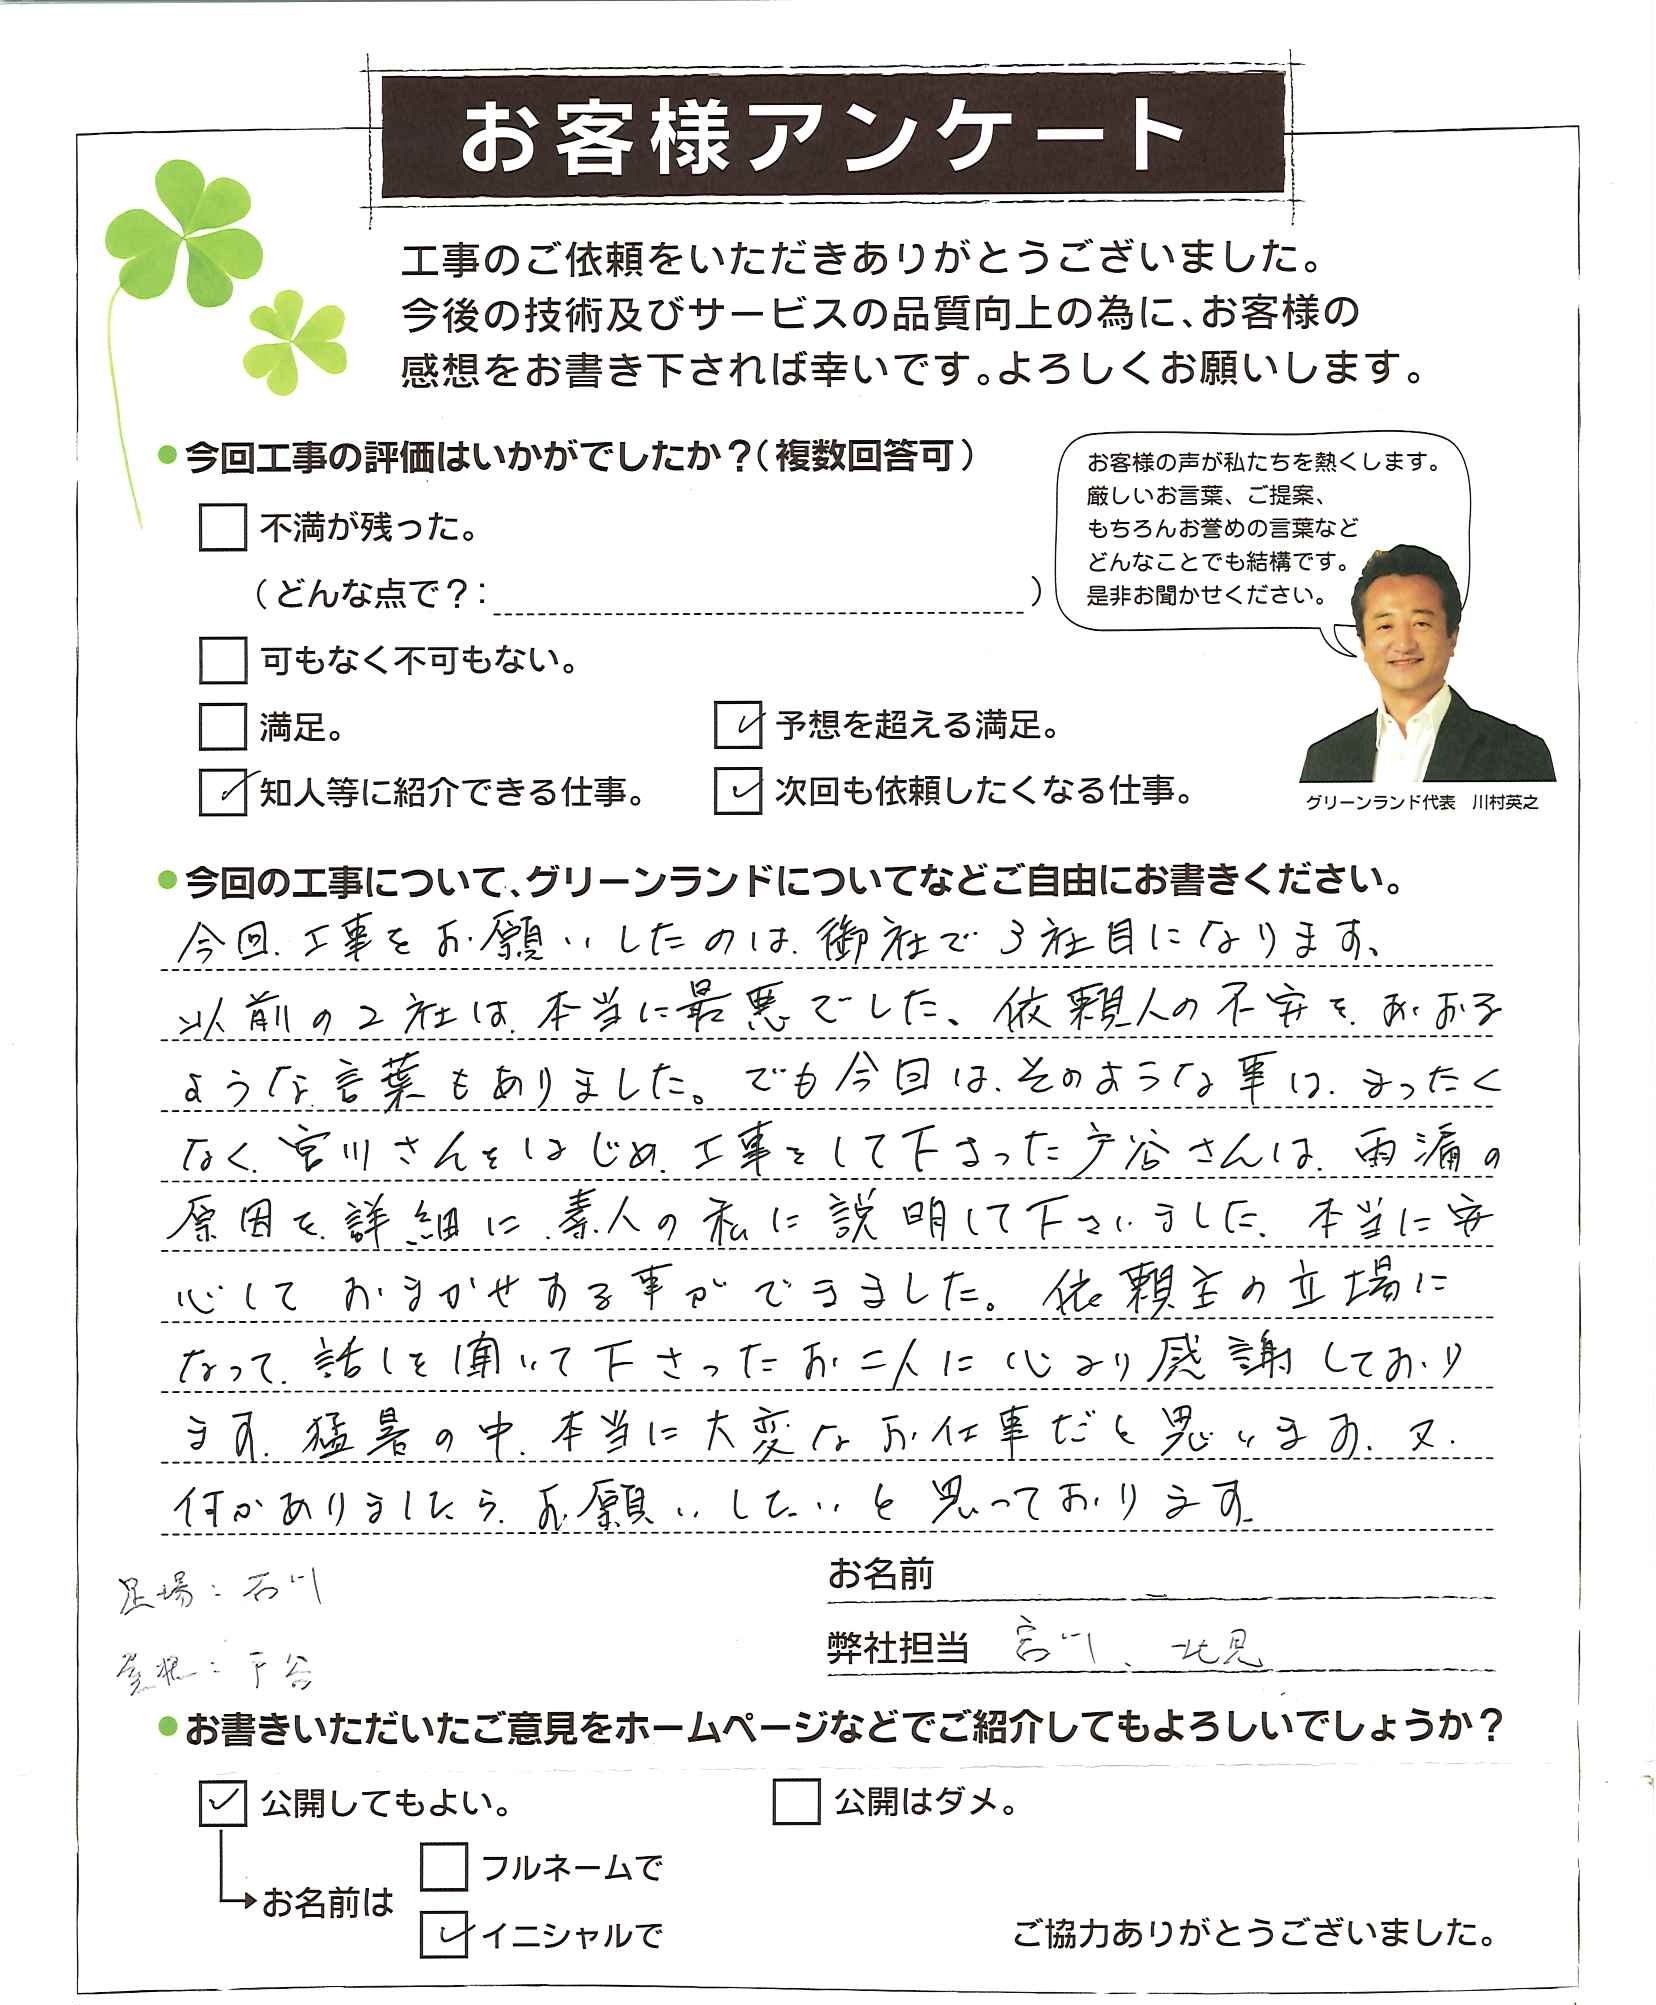 お客様アンケート
工事のご依頼をいただきありがとうございました。
今後の技術及びサービスの品質向上の為に、お客様の
感想をお書き下されれば幸いです。よろしくお願いします。
●今回工事の評価はいかがでしたか？(複数回答可)
お客様の声が私たちを熱くします。
厳しいお言葉、ご提案、
もちろんお誉めの言葉など
どんなことでも結構です。
是非お聞かせください。
不満が残った。
(どんな点で？: )
可もなく不可もない。
満足。
予想を超える満足。
知人等に紹介できる仕事。
次回も依頼したくなる仕事。
グリーンランド代表 川村英之
●今回の工事について、グリーンランドについてなどご自由にお書きください。
今回、工事をお願いしたのは、御社で3社目になります、
以前の2社は、本当に最悪でした、依頼人の不安を、あおる
ような言葉もありました。でも今回は、そのような事は、まったく
なく、宮川さんをはじめ、工事をして下さった戸谷さんは、雨漏の
原因を、詳細に、素人の私に説明して下さいました、本当に安
心しておまかせする事ができました。依頼主の立場に
なって、話しを聞いて下さったお二人に心より感謝しており
ます、猛暑の中、本当に大変なお仕事だと思います、又、
何かありましたら、お願いしたいと思っております
足場：石川
お名前
屋根：戸谷
弊社担当 宮川、北見
●お書きいただいたご意見をホームページなどでご紹介してもよろしいでしょうか？
公開してもよい。
公開はダメ。
フルネームで
お名前は
イニシャルで
ご協力ありがとうございました。